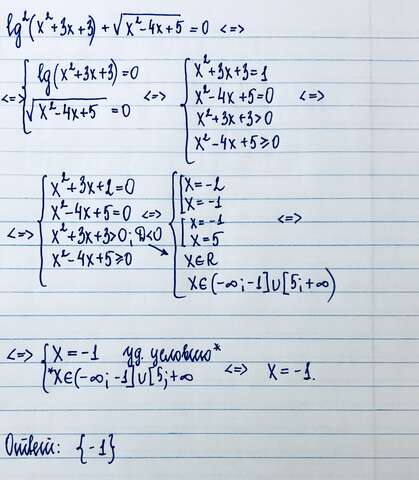 lg²(x²+3x+3) + √(x²-4x+5) = 0 <=>
<=> { lg(x²+3x+3) = 0
√(x²-4x+5) = 0 <=>
{ x²+3x+3 = 1
x²-4x+5 = 0 <=>
x²+3x+3 > 0
x²-4x+5 ≥ 0
<=> { x²+3x+2 = 0
x²-4x+5 = 0 <=>
x²+3x+3 > 0; D<0
x²-4x+5 ≥ 0
{ [ x = -2
x = -1
[ x = -1 <=>
x = 5
x∈R
x∈(-∞; -1]∪[5; +∞)
<=> { x = -1 уд. условию*
*x∈(-∞; -1]∪[5; +∞ <=> x = -1.
Ответ: {-1}